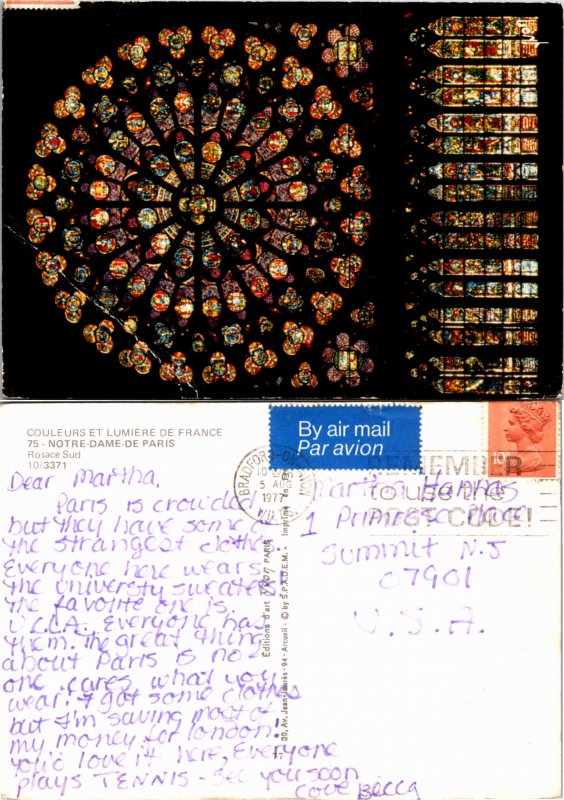 COULEURS ET LUMIERE DE FRANCE
75 - NOTRE-DAME-DE PARIS
Rosace Sud
10/3371
By air mail
Par avion
BRADFORD-ON-
5 AUG
1977
WILTS
REMEMBER
to use the
POST CODE!
10
Dear Martha,
Paris is crowded
but they have some of
the strangest clothes.
Everyone here wears
the university sweater
the favorite one is
UCLA. Everyone has
them. The great thing
about Paris is no
one cares what you
wear. I got some clothes
but I'm saving most of
my money for London!
You'd love it here, Everyone
plays TENNIS - See you soon
Love Becca
Editions d'art YVON PARIS
30, Av. Jean-Jaurès - 94 - Arcueil - © by S.P.A.D.E.M. - Imprimé en
Martha
1 Primrose Place
Summit N.J
07901
U.S.A.